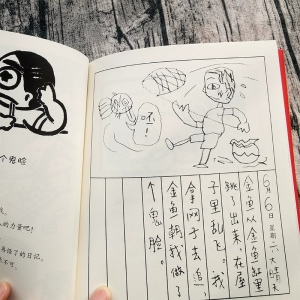 个鬼脸
的力量吧！
的日记。
不可。
呸！
6月6日 星期六 大晴天
金鱼从金鱼缸里
跳了出来，在屋
子里乱飞。我
拿网子去追
金鱼朝我做了
个鬼脸。